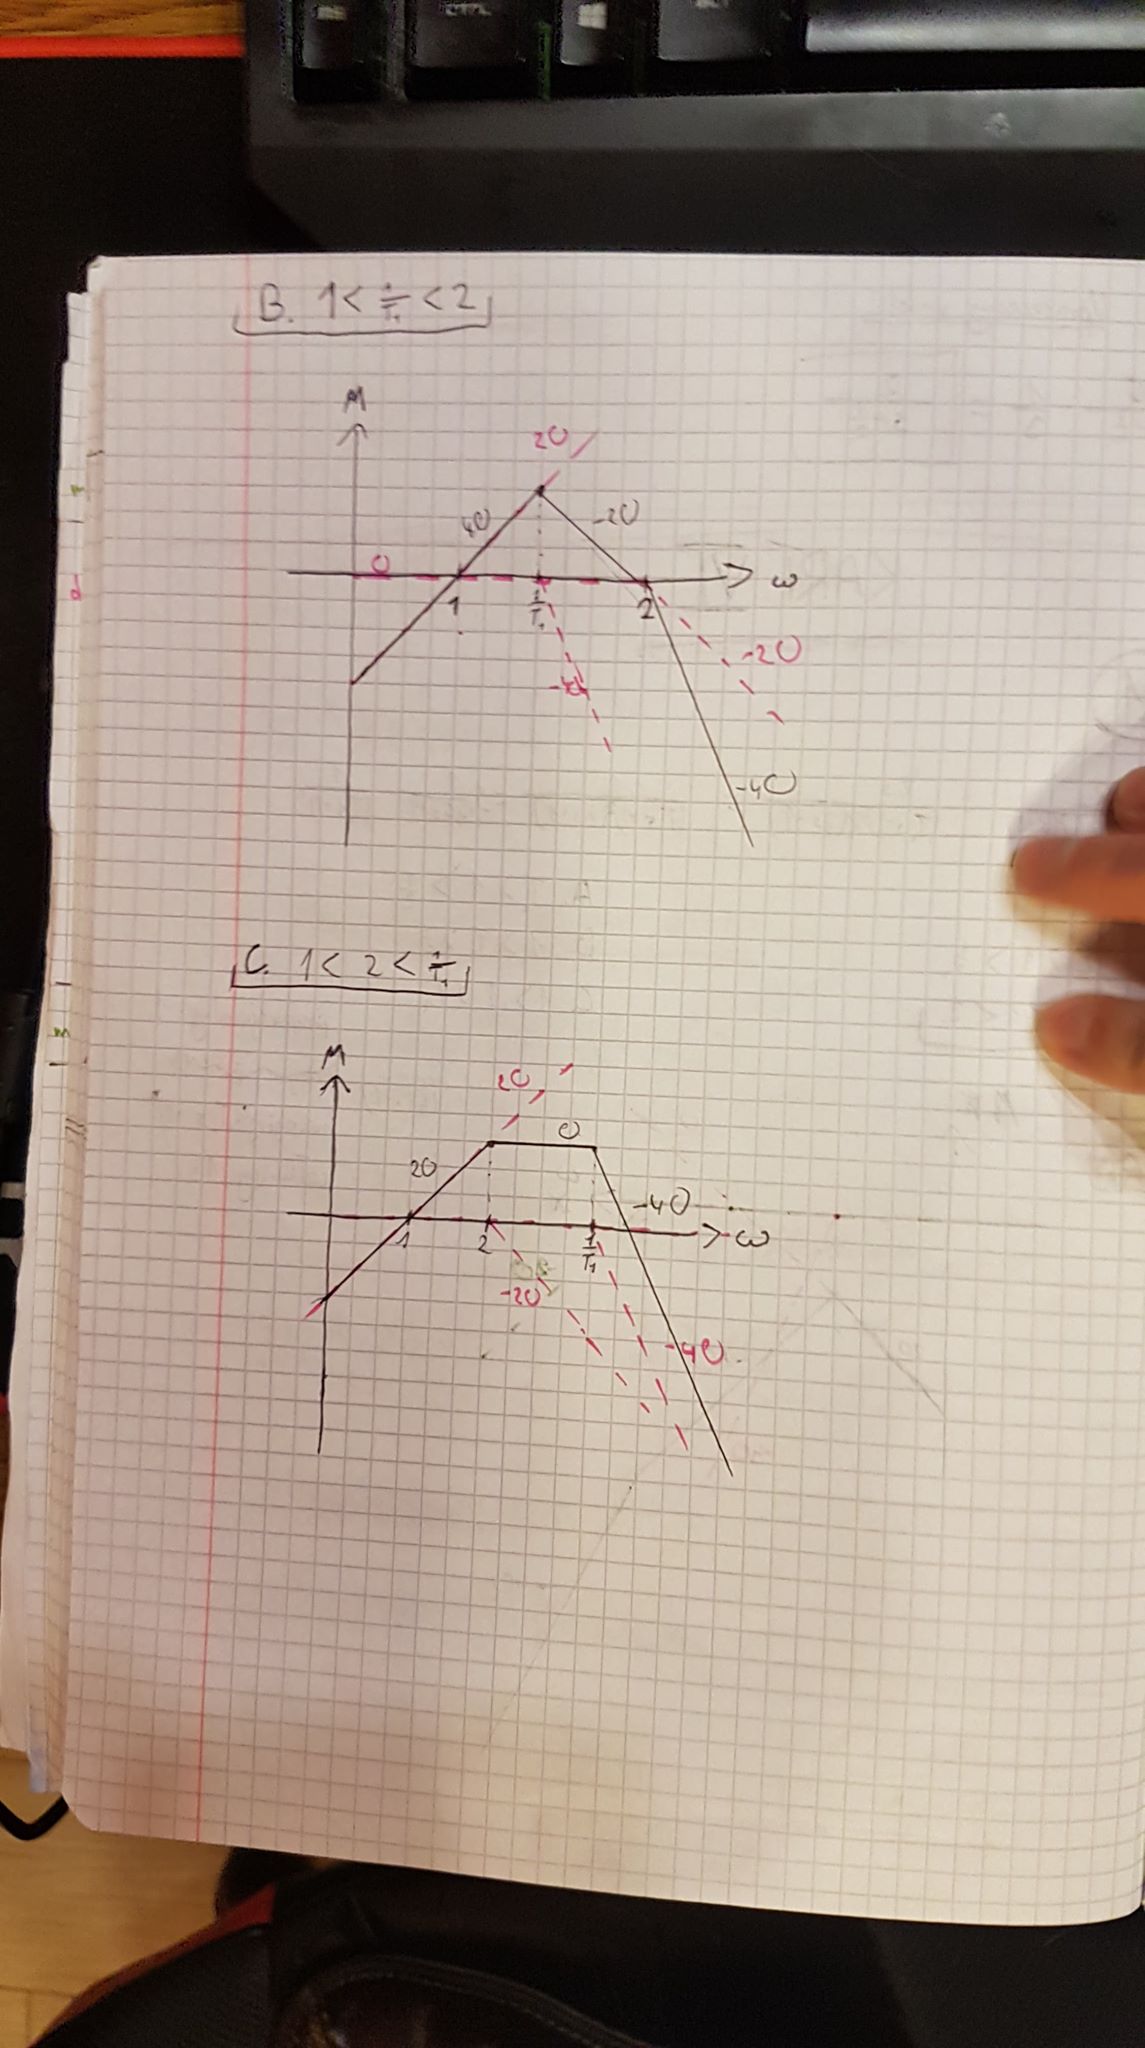 B. 1 < 1/T₁ < 2
M
20
40
-20
0
ω
1
1/T₁
2
-20
-40
C. 1 < 2 < 1/T₁
M
20
0
20
-40
1
2
1/T₁
ω
-20
-40